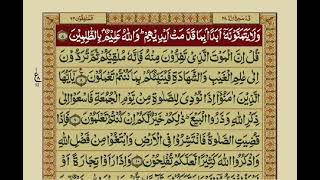 وَلَا يَتَمَنَّوْنَهٗٓ اَبَدًۢا بِمَا قَدَّمَتْ اَيْدِيْهِمْ ؕ وَاللّٰهُ عَلِيْمٌۢ بِالظّٰلِمِيْنَ
قُلْ اِنَّ الْمَوْتَ الَّذِيْ تَفِرُّوْنَ مِنْهُ فَاِنَّهٗ مُلٰقِيْكُمْ ثُمَّ تُرَدُّوْنَ
اِلٰى عٰلِمِ الْغَيْبِ وَالشَّهَادَةِ فَيُنَبِّئُكُمْ بِمَا كُنْتُمْ تَعْمَلُوْنَ يٰٓاَيُّهَا
الَّذِيْنَ اٰمَنُوْٓا اِذَا نُوْدِيَ لِلصَّلٰوةِ مِنْ يَّوْمِ الْجُمُعَةِ فَاسْعَوْا اِلٰى
ذِكْرِ اللّٰهِ وَذَرُوا الْبَيْعَ ؕ ذٰلِكُمْ خَيْرٌ لَّكُمْ اِنْ كُنْتُمْ تَعْلَمُوْنَ فَاِذَا
قُضِيَتِ الصَّلٰوةُ فَانْتَشِرُوْا فِي الْاَرْضِ وَابْتَغُوْا مِنْ فَضْلِ
اللّٰهِ وَاذْكُرُوا اللّٰهَ كَثِيْرًا لَّعَلَّكُمْ تُفْلِحُوْنَ وَاِذَا رَاَوْا تِجَارَةً اَوْ